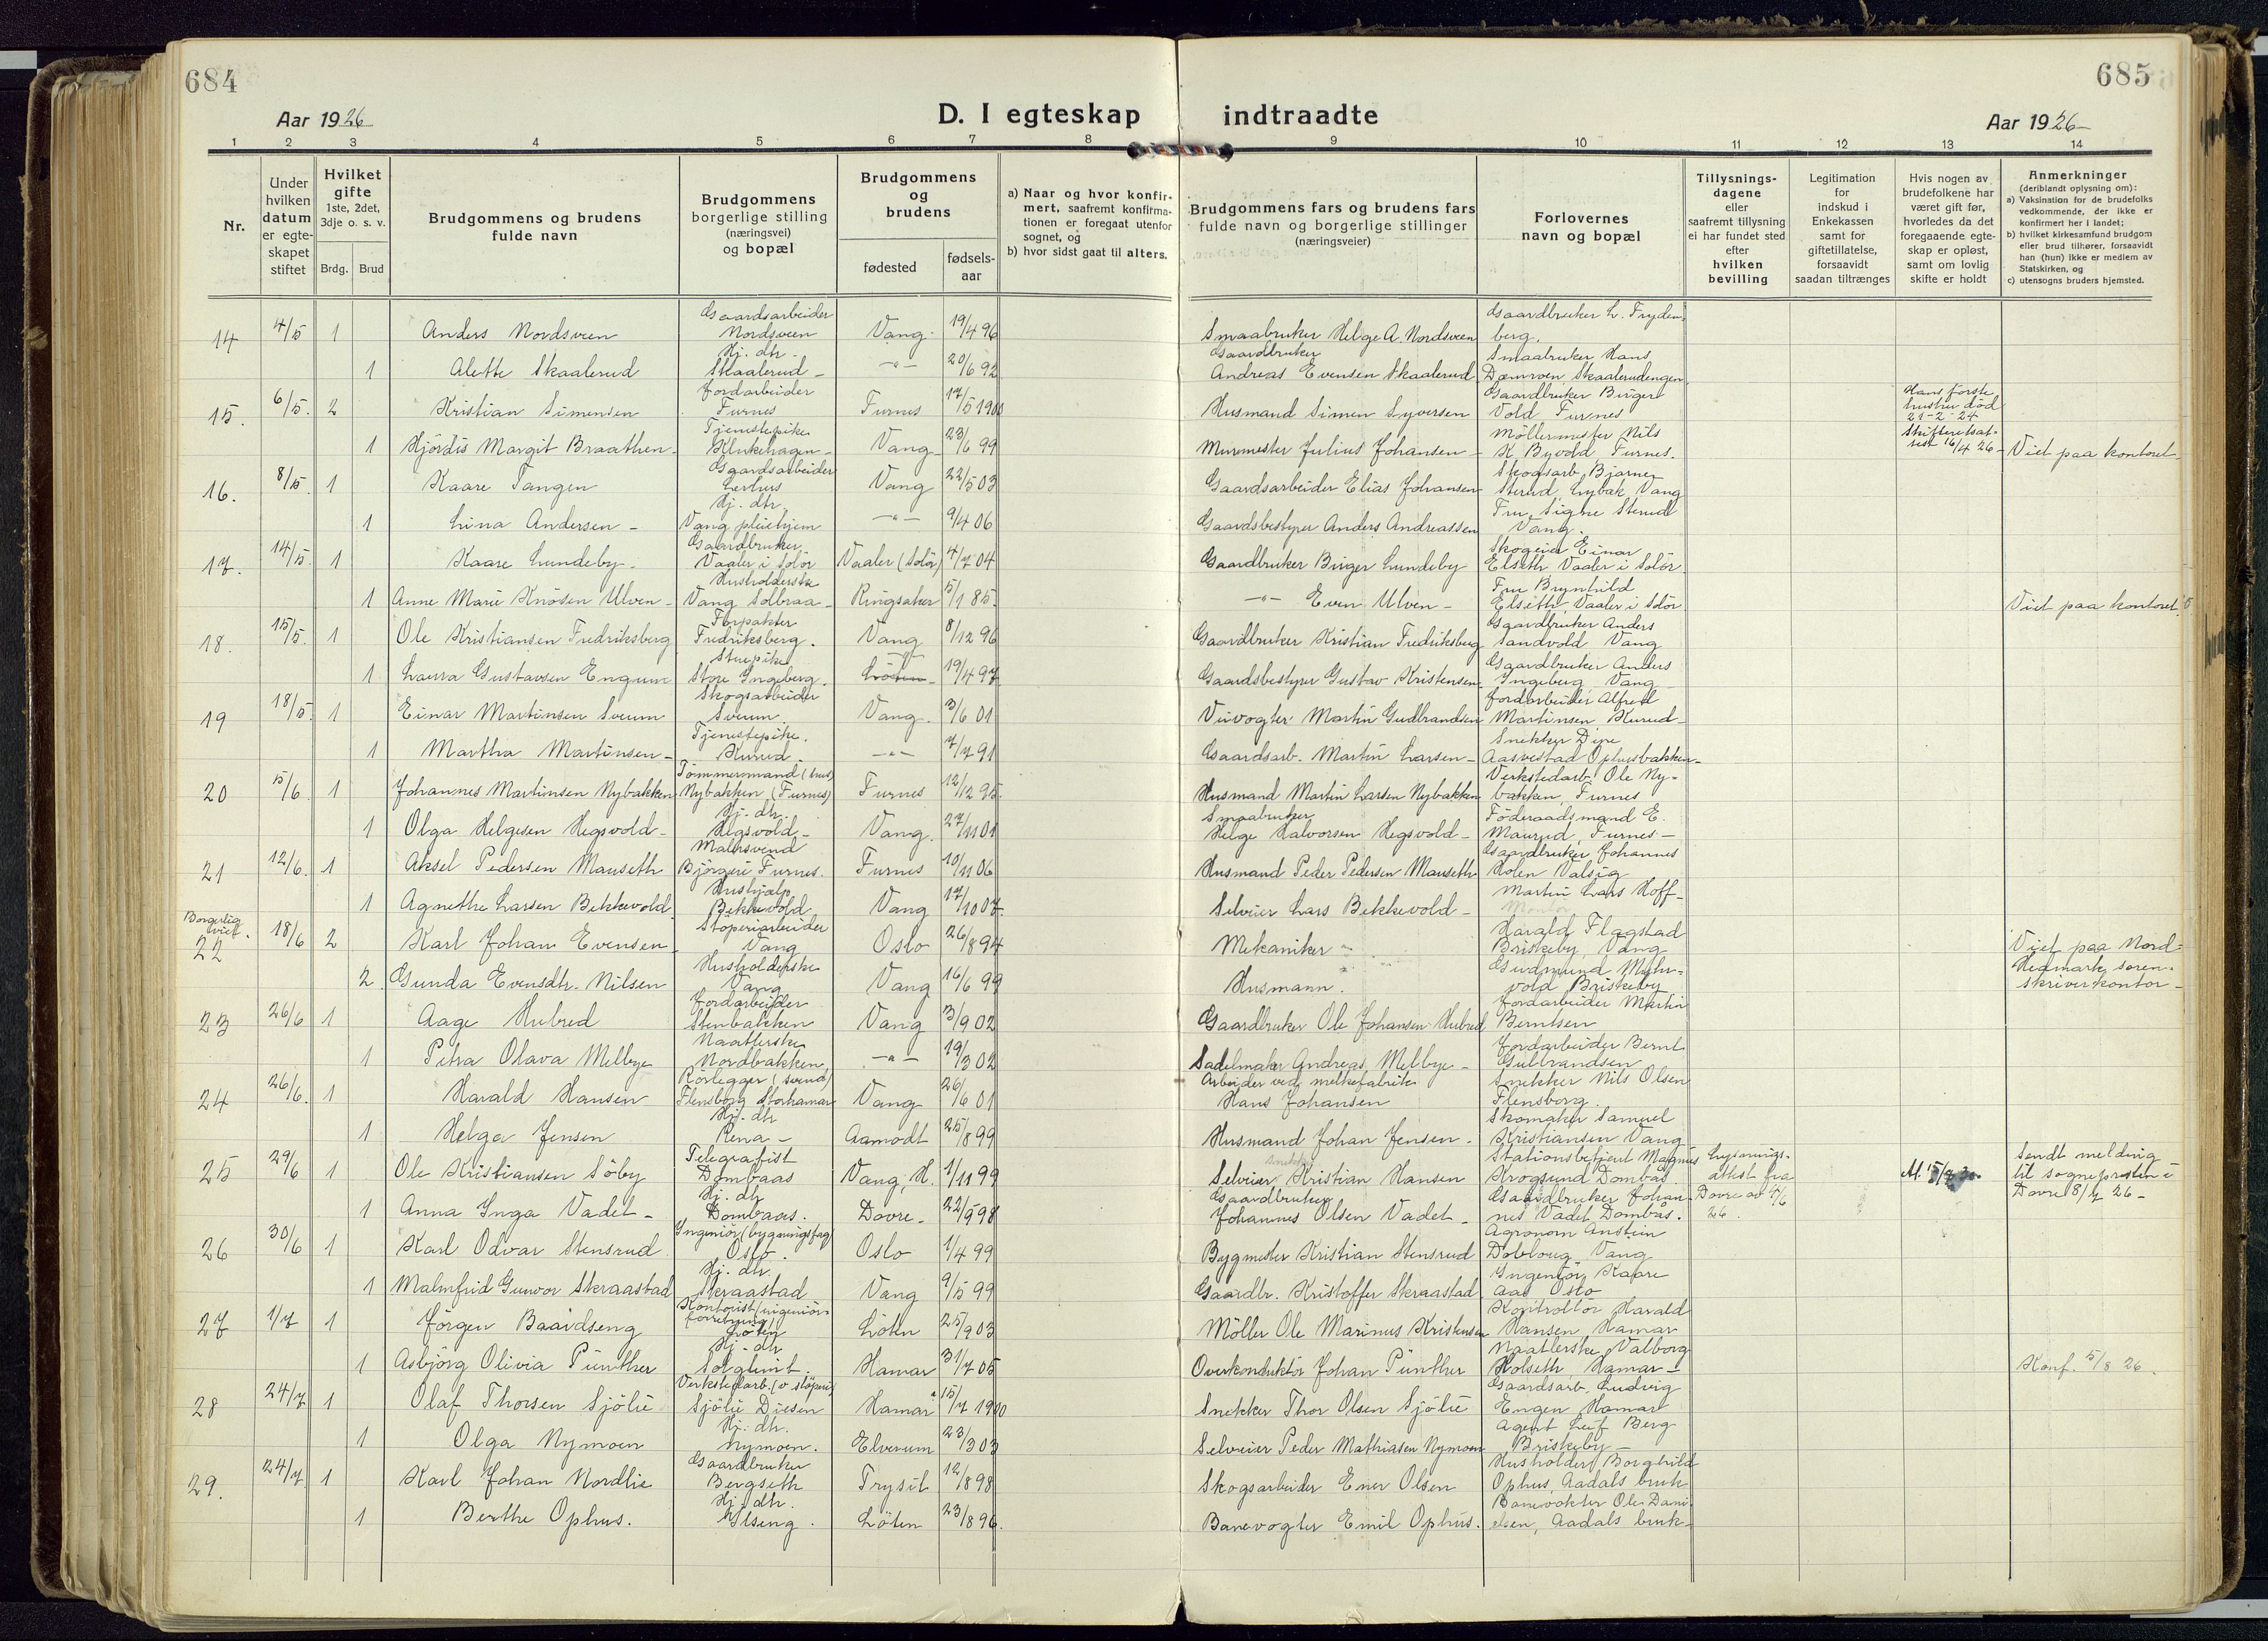 684
685
Aar 1926
D. I egteskap indtraadte
Aar 1926
1 2 3 4 5 6 7 8 9 10 11 12 13 14
Nr.
Under hvilken datum er egteskapet stiftet
Hvilket gifte 1ste, 2det, 3dje o. s. v.
Brdg. Brud
Brudgommens og brudens fulde navn
Brudgommens borgerlige stilling (næringsvei) og bopæl
Brudgommens og brudens
fødested
fødselsaar
a) Naar og hvor konfirmert, saafremt konfirmationen er foregaat utenfor sognet, og
b) hvor sidst gaat til alters.
Brudgommens fars og brudens fars fulde navn og borgerlige stillinger (næringsveier)
Forlovernes navn og bopæl
Tillysningsdagene eller saafremt tillysning ei har fundet sted efter hvilken bevilling
Legitimation for indskud i Enkekassen samt for giftetillatelse, forsaavidt saadan tiltrænges
Hvis nogen av brudefolkene har været gift før, hvorledes da det foregaaende egteskap er opløst, samt om lovlig skifte er holdt
Anmerkninger (deriblandt oplysning om):
a) Vaksination for de brudefolks vedkommende, der ikke er konfirmert her i landet;
b) hvilket kirkesamfund brudgom eller brud tilhører, forsaavidt han (hun) ikke er medlem av Statskirken, og
c) utensogns bruders hjemsted.
14 4/5 1 Anders Nordsveen Gaardsarbeider Nordsveen Vang 19/4 96 Smaabruker Helge A. Nordsveen Gaardbruker L. Frydenberg.
1 Alette Skaalerud Hj. dtr. Skaalerud -"- 20/6 92 Gaardbruker Andreas Evensen Skaalerud Smaabruker Hans Dæmroen, Skaalerudengen
15. 6/5. 2 Kristian Simensen Jordarbeider Furnes Furnes 17/5 1900 Husmand Simen Syversen Gaardbruker Birger Vold Furnes Hans første hustru død 21-2-24 Skifteretsattest 16/4 26
1 Hjørdis Margit Braathen Tjenestepike Klukehagen Vang 23/6 99 Murmester Julius Johansen Møllermester Nils K Byvold, Furnes. Viet paa kontoret
16. 8/5. 1 Kaare Tangen Gaardsarbeider Lerhus Vang 22/5 03 Gaardsarbeider Elias Johansen Skogsarb. Bjarne Sterud, Lybak, Vang
1 Lina Andersen Hj. dtr. Vang pleiehjem -"- 9/4 06 Gaardsbestyrer Anders Andreassen Fru Signe Sterud Vang.
17. 14/5. 1 Kaare Lundeby Gaardbruker Vaaler i Solør Vaaler (Solør) 4/7 04 Gaardbruker Birger Lundeby Skogeier Einar Elseth Vaaler i Solør
1 Anne Marie Knösen Ulven Husholderske Vang Solbraa Ringsaker 5/1 85. -"- Even Ulven Fru Brynhild Elseth, Vaaler i Solør Viet paa kontoret
18. 15/5. 1 Ole Kristiansen Fredriksberg Forpakter Fredriksberg. Vang 8/12 96 Gaardbruker Kristian Fredriksberg Gaardbruker Anders Sandvold Vang
1 Laura Gustavsen Engum Stuepike Store Ingeberg. Löten 19/4 97 Gaardsbestyrer Gustav Kristensen Gaardbruker Anders Ingeberg Vang
19 18/5. 1 Einar Martinsen Sveum Skogsarbeider Sveum Vang. 3/6 01 Veivogter Martin Gudbrandsen Jordarbeider Alfred Martinsen Kurud
1 Martha Martinsen Tjenestepike. Kurud -"- 7/7 91 Gaardsarb. Martin Larsen Snekker Dyre Aasvestad Ophusbakken
20 5/6. 1 Johannes Martinsen Nybakken Tømmermand (hus) Nybakken (Furnes) Furnes 12/12 95. Husmand Martin Larsen Nybakken Verkstedarb. Ole Nybakken, Furnes
1 Olga Helgesen Hegsvold Hj. dtr. Hegsvold Vang. 27/11 01 Smaabruker Helge Halvorsen Hegsvold Föderaadsmand E. Maurud, Furnes
21 12/6. 1 Aksel Pedersen Mauseth Malersvend Björgeie Furnes. Furnes 10/11 06 Husmand Peder Pedersen Mauseth Gaardbruker Johannes Holen Valsig
1 Agnethe Larsen Bekkevold Hushjælp Bekkevold Vang 17/10 07. Selveier Lars Bekkevold Martin Lars Hoff Montør
Borgerlig viet. 22 18/6 2 Karl Johan Evensen Støperiarbeider Vang Oslo 26/8 94 Mekaniker Harald Flagstad Briskeby, Vang Viet paa Nord-Hedmark sorenskriverkontor
2. Gunda Evensdtr. Nilsen Husholderske Vang Vang 16/6 99 Husmann. Gudmund Myhrvold, Briskeby
23 26/6 1 Aage Hubred Jordarbeider Stenbakken Vang 3/9 02 Gaardbruker Ole Johansen Hubred Jordarbeider Martin Berntsen
1 Petra Olava Melbye Naatlerske Nordbakken -"- 19/3 02 Sadelmaker Andreas Melbye Jordarbeider Bernt Gulbrandsen
24 26/6. 1 Harald Hansen Rörlegger (svend) Flensborg Storhamar Vang 26/6 01 Arbeider ved melkefabrik Hans Johansen Snekker Nils Olsen Flensborg.
1 Helga Jensen Hj. dtr Rena Aamodt 25/8 99 Husmand Johan Jensen. Skomaker Samuel Kristiansen Vang
25 29/6 1 Ole Kristiansen Söby Telegrafist Dombaas Vang, H. 1/11 99 Selveier Snekker Kristian Hansen Stationsbetjent Magnus Krogsund Dombås Lysningsattest fra Dovre av 4/6 26. Sendt melding til sognepresten i Dovre 8/7 26
1 Anna Inga Vadet Hj. dtr Dombaas. Dovre 22/9 98 Gaardbruker Johannes Olsen Vadet Gaardbruker Johannes Vadet Dombås.
26 30/6 1 Karl Odvar Stensrud Ingeniör (bygningsfag) Oslo. Oslo 1/4 99 Bygmester Kristian Stensrud Agronom Anstein Dobloug Vang
1 Malmfrid Gunvor Skraastad Hj. dtr. Skraastad Vang 9/5 99 Gaardbr. Kristoffer Skraastad Ingeniör Kaare Aas Oslo
27 1/7 1 Jörgen Baardseng Kontorist (ingeniörforretning) Löten Löten 25/9 03 Möller Ole Marinus Kristensen Kontrollör Harald Hansen Hamar
1 Asbjörg Olivia Pünther Hj. dtr Solglimt. Hamar 31/7 05 Overkonduktör Johan Pünther Naatlerske Valborg Holseth Hamar Konf. 5/8 26.
28 24/7 1 Olaf Thorsen Sjölie Verkstedarb. (v. støperi) Sjölie Disen Hamar 15/7 1900 Snekker Thor Olsen Sjölie Gaardsarb. Ludvig Engen Hamar
1 Olga Nymoen Hj. dtr. Nymoen. Elverum 23/3 03 Selveier Peder Mathiasen Nymoen Agent Leif Berg Briskeby
29. 24/7 1 Karl Johan Nordlie Gaardbruker Bergseth Trysil 12/1 898 Skogsarbeider Ener Olsen Husholder Borghild Ophus, Aadals bruk
1 Berthe Ophus. Hj. dtr. Ilseng. Löten 23/8 96. Banevogter Emil Ophus. Banevokter Ole Danielsen, Aadals bruk